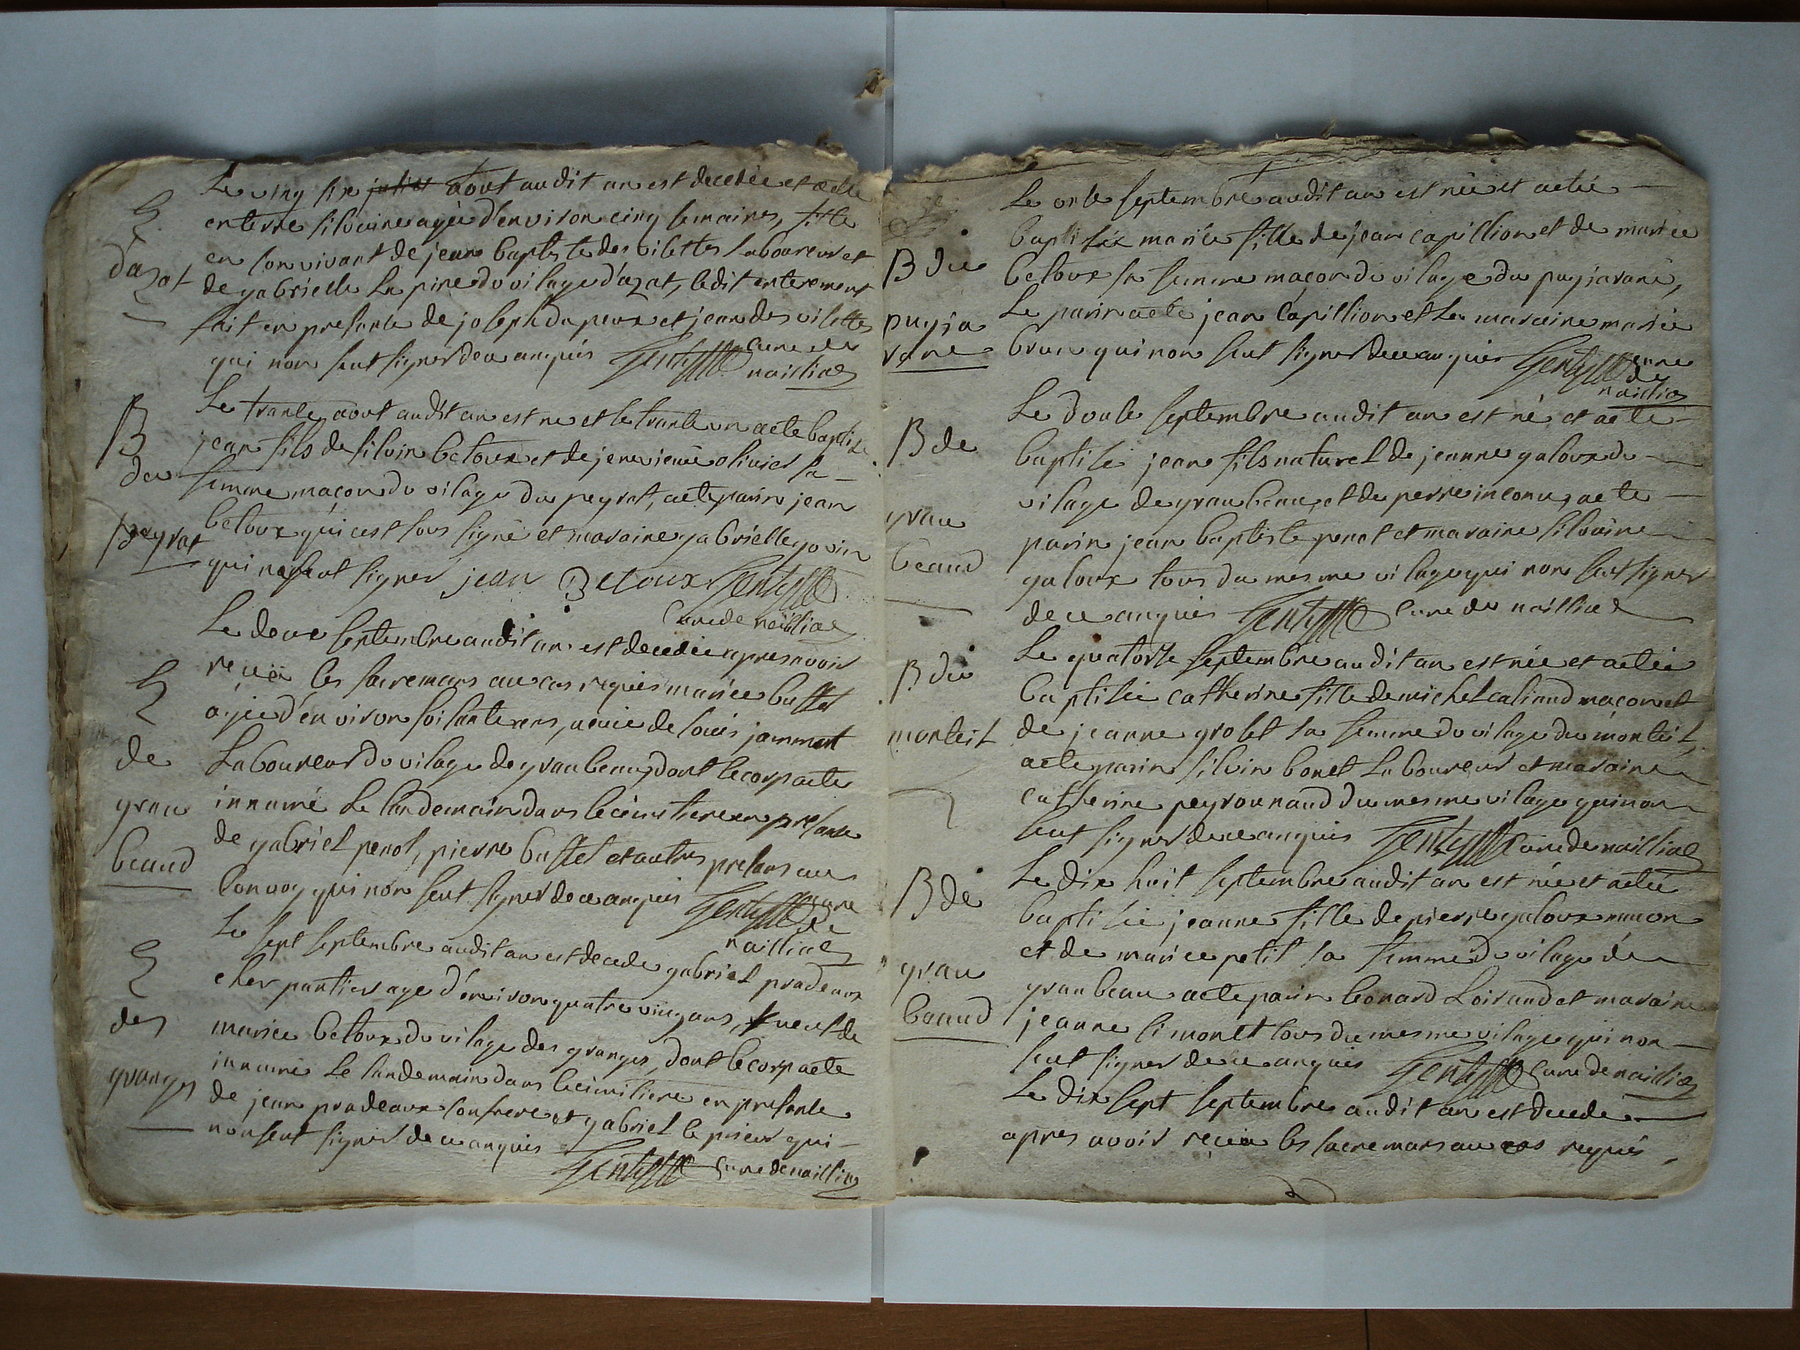 d'azat
Le ving six juliet aout audit an est decedée et aeté
enterré silvaine agée d'environ cinq semaines, fille
en son vivant de jean baptiste des vilettes laboureur et
de gabrielle la pine du vilage d'azat, ledit enterement
fait en presante de joseph du peux et jean des vilettes
qui non seut signer de ce anquis Gentyffe curé de
naillias
B
du
peyrat
Le trante aout audit an est né et le trante un aeté baptizé
jean fils de silvin betoux et de jenevieuve olivier sa
femme maçon du vilage du peyrat, aeté parin jean
betoux qui cest sous signé et maraine gabrielle govin
qui na seut signer jean Betoux
Curé de naillias
de
grau
beaud
Le deux septembre audit an est decedée apres avoir
reçüe les sacremans au cas requis mariée bussel
agée d'environ soisante ans, veuve de louis jammet
laboureur du vilage de graubeau, dont le corp aeté
innumé le landemain dans le cimitiere en presante
de gabriel penot, pierre bussel et autres presans au
convoy qui non seut signer de ce anquis curé
de
naillias
des
granges
Le sept septembre audit an est decede gabriel pradeaux
cherpantier age d'environ quatre vingt ans, veuf de
mariée betoux du vilage des granges, dont le corp aeté
innumé le landemain dans le cimitiere en presante
de jean pradeaux son frere et gabriel le prieur qui
non seut signer de ce anquis
curé de naillias
B du
puyja
rane
Le onse septembre audit an est née et aetée
baptisée mariée fille de jean capillion et de mariée
betoux sa femme maçon du vilage du puyjarané,
Le parin aeté jean capillion et la maraine mariée
brun qui non seut signer de ce anquis curé
de
naillias
B de
grau
beaud
Le douse septembre audit an est né et aeté
baptisé jean fils naturel de jeanne galoux du
vilage de graubeau, et de perre inconu, aeté
parin jean baptiste penot et maraine silvaine
galoux tous du mesme vilage qui non seut signer
de ce anquis curé de naillias
B du
monteil
Le quatorse septembre audit an est née et aetée
baptisée catherine fille de michel caliaud maçon et
de jeanne grolet sa femme du vilage du monteil,
aeté parin silvin bonet laboureur et maraine
catherine peyrounaud du mesme vilage qui non
seut signer de ce anquis curé de naillias
B de
grau
beaud
Le dix huit septembre audit an est née et aeté
baptisée jeanne fille de pierre galoux maçon
et de mariée petit sa femme du vilage de
graubeau aeté parin leonard loiraud et maraine
jeanne limonet tous du mesme vilage qui non
seut signer de ce anquis curé de naillias
Le dix sept septembre audit an est decedé
apres avoir reçüe les sacremans au cas requis